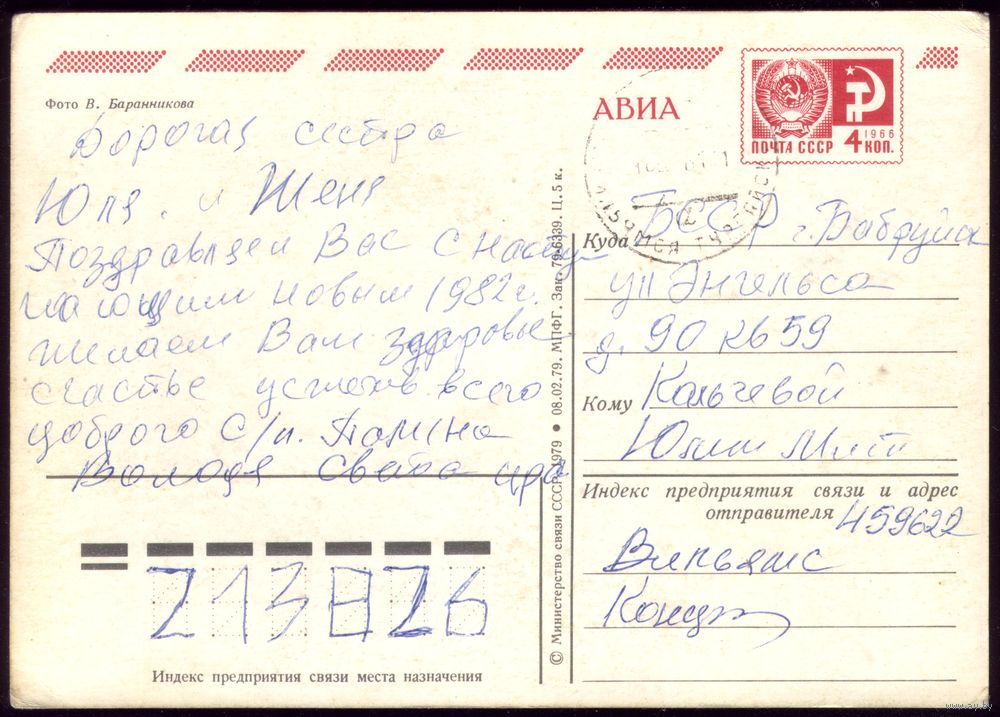 Фото В. Баранникова
Дорогая сестра
Юля. и Женя
Поздравляем Вас с насту
пающим новым 1982 г.
желаем Вам здоровье
счастье успехов всего
доброго с/п.
Володя Света
213826
Индекс предприятия связи места назначения
© Министерство связи СССР. 1979 ● 08.02.79. МПФГ. Зак. 79-6339. Ц. 5 к.
АВИА
ПОЧТА СССР
1966
4 КОП.
Куда БССР г. Бабруйск
ул Энгельса
д. 90 кв 59
Кому Кольчевой
Юлии
Индекс предприятия связи и адрес
отправителя 459622
www.ay.by